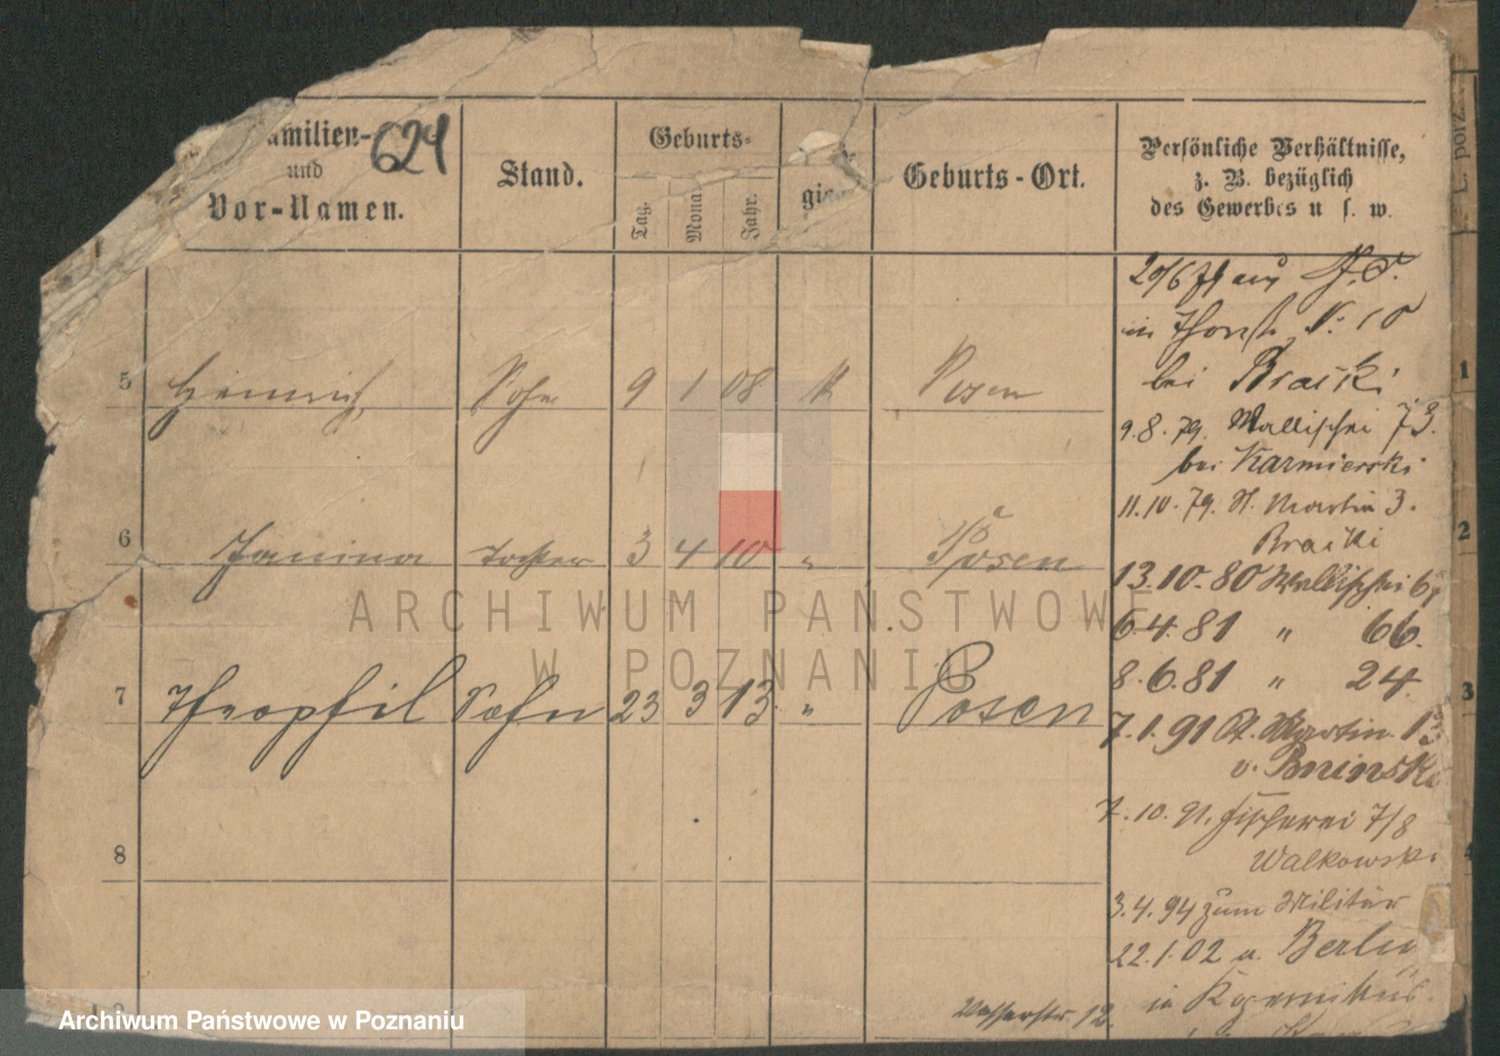 624
Familien-
und
Vor-Namen.
Stand.
Geburts-
Tag.
Mona
Jahr.
gion
Geburts-Ort.
Persönliche Verhältnisse,
z. B. bezüglich
des Gewerbes u. s. w.
5 Heinrich, Sohn 9 1 08 K Posen
6 Janina Tochter 3 4 10 " Posen
7 Theophil Sohn 23 3 13 " Posen
8
20/6 79 aus
in No 10
bei Braiski
9.8.79. Wallischei 73.
bei Karmierski
11.10.79. St. Martin 3.
Braiski
13.10.80 Wallischei
6.4.81 " 66.
8.6.81 " 24.
7.1.91 St. Martin 13
v. Bninski
7.10.91. Fischerei 7/8
Walkowski
3.4.94 zum Militär
22.1.02 a. Berlin
in
Wasserstr. 12.
L. porz.
1
2
3
4
ARCHIWUM PAŃSTWOWE
W POZNANIU
Archiwum Państwowe w Poznaniu